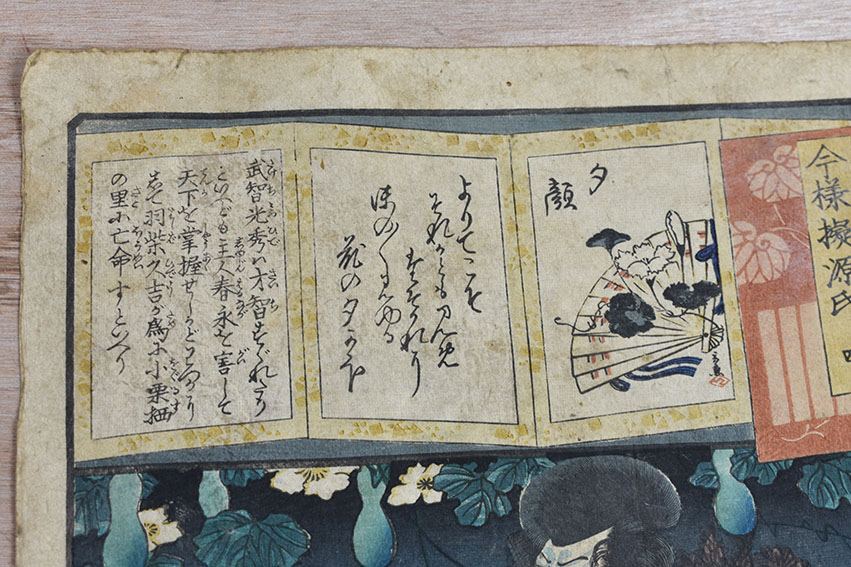 今様擬源氏
夕
顔
よりてこそ
それかとも見め
たそかれに
ほの〳〵みゆる
花の夕かほ
武智光秀ハ才智すぐれたり
といへども主人春永を害して
天下を掌握せしかど
羽柴久吉が為に小栗栖
の里に亡命すといへり